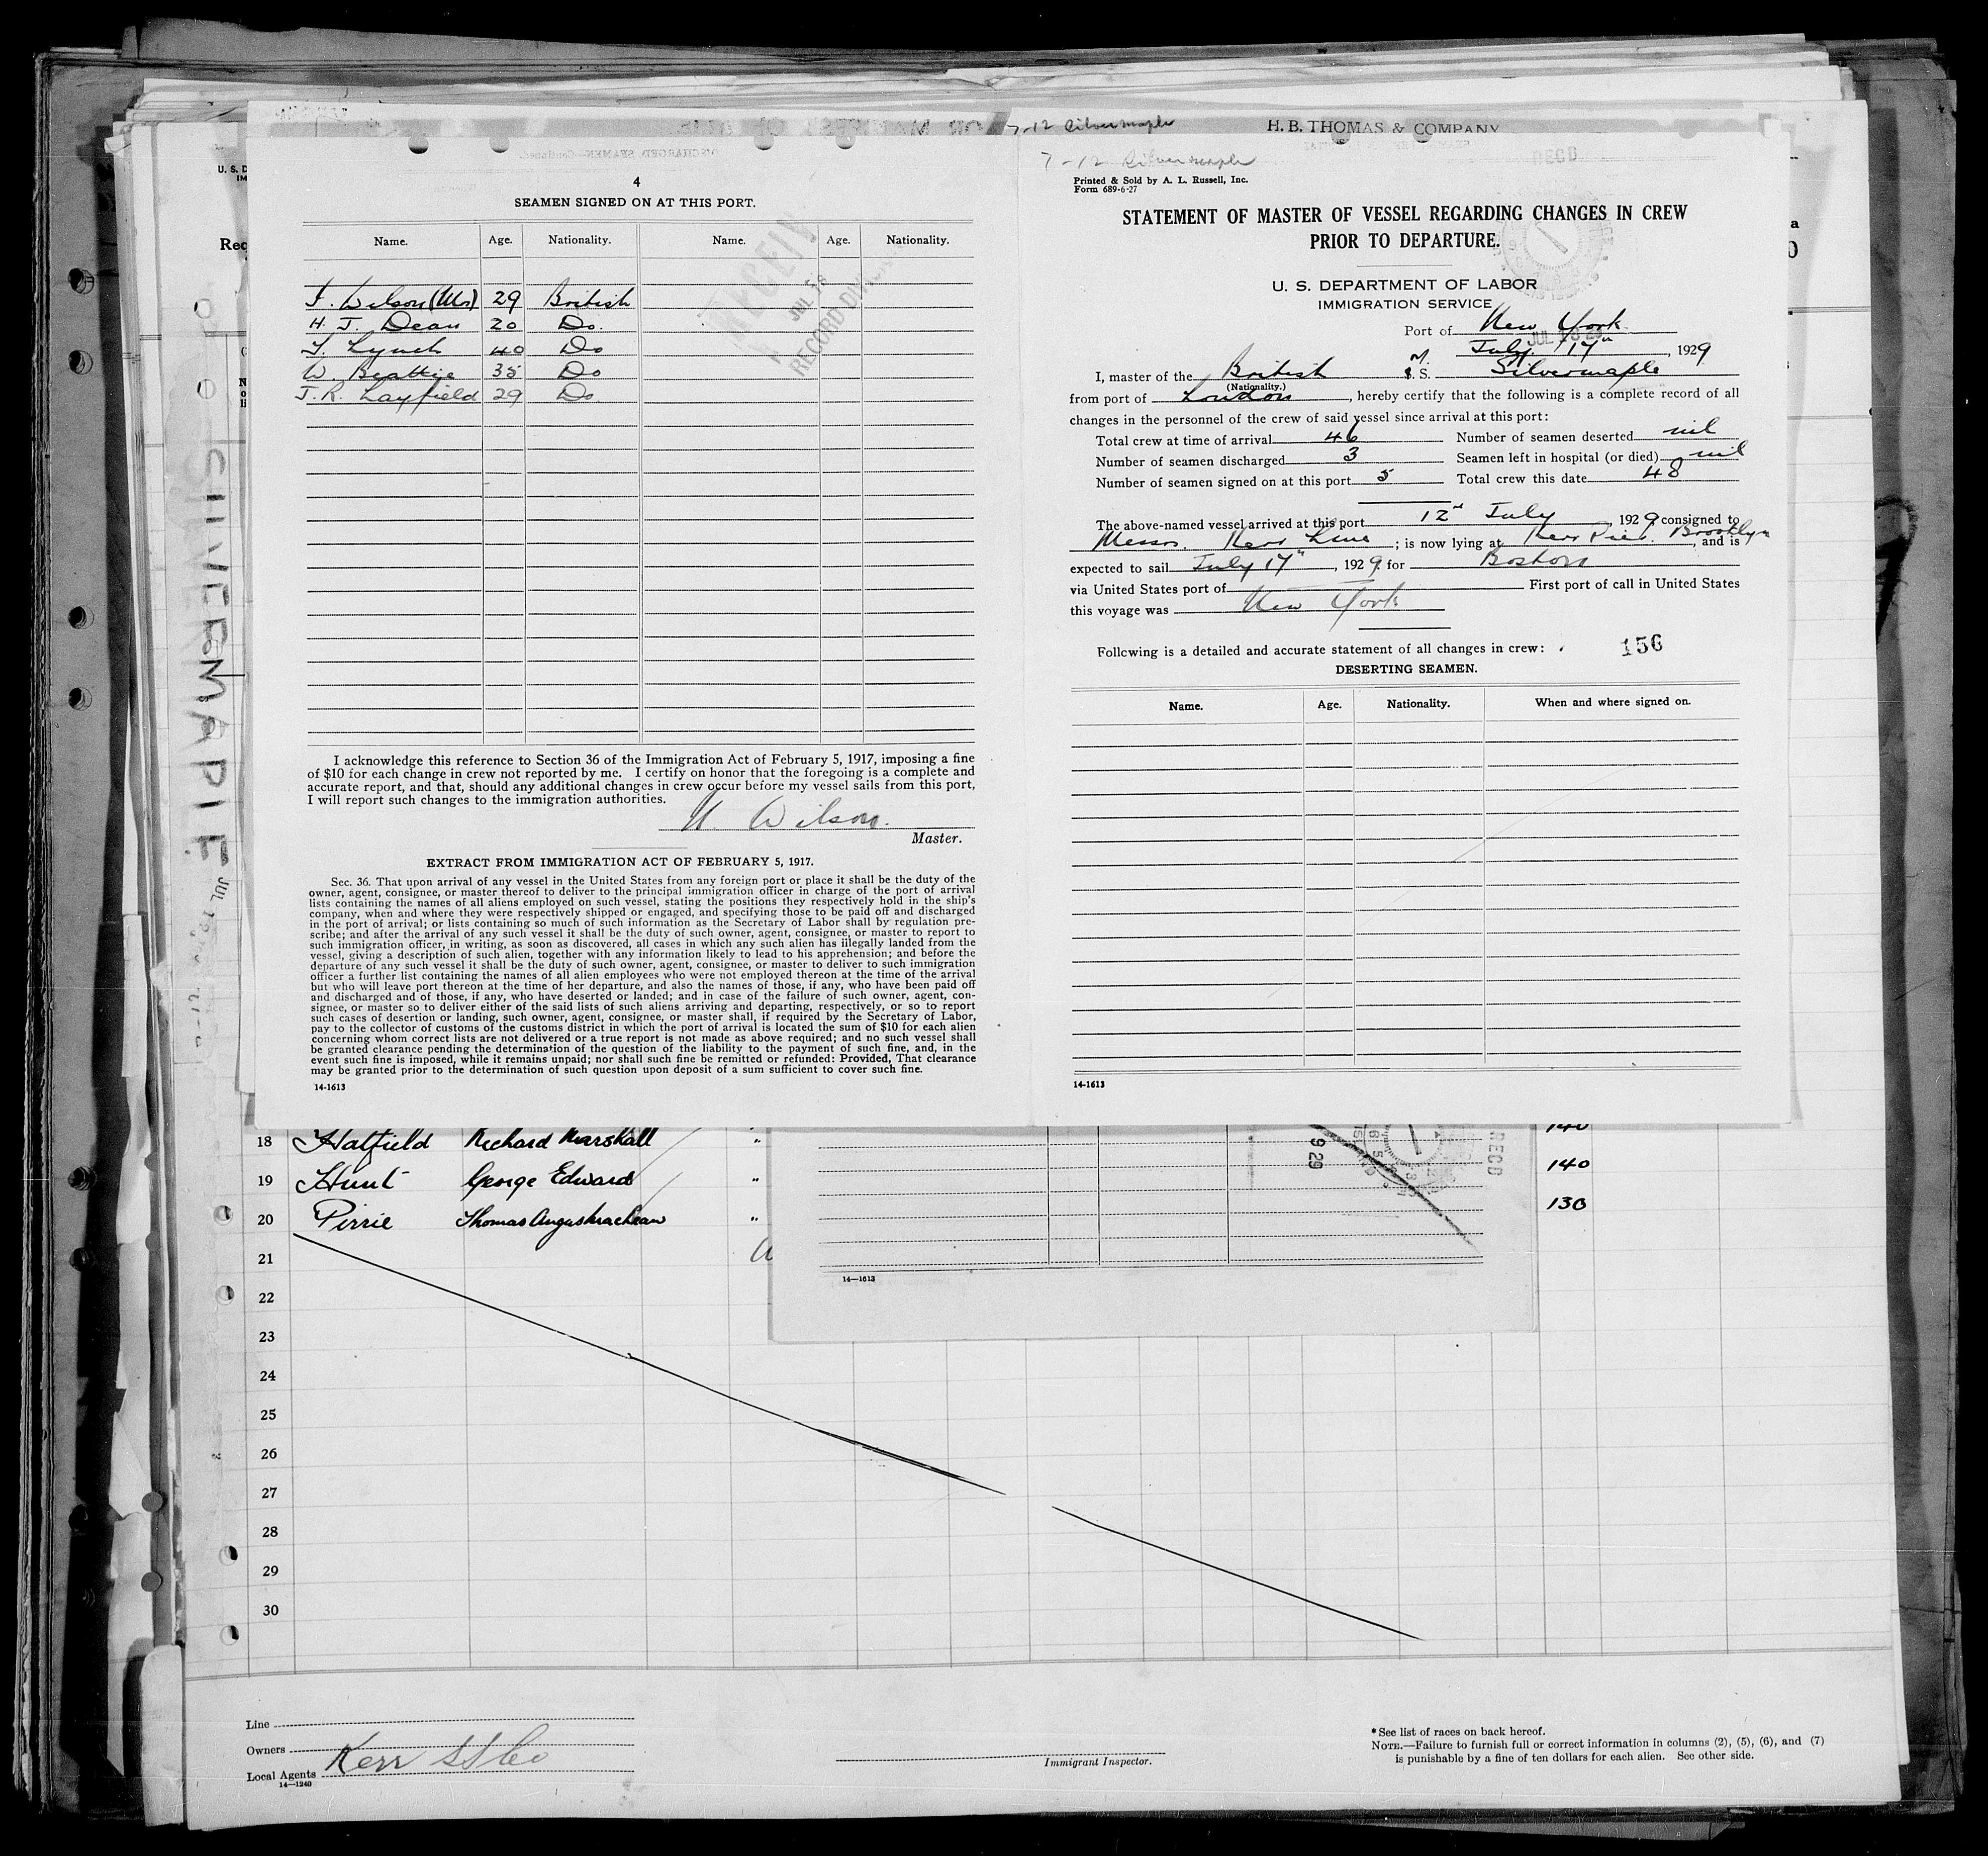 4
SEAMEN SIGNED ON AT THIS PORT.
Name. Age. Nationality. Name. Age. Nationality.
J. Wilson (Mr) 29 British
H. J. Dean 20 Do.
T. Lynch 40 Do
W. Beattie 35 Do
J. R. Layfield 29 Do
RECEIV
JUL 18
RECORD DIVIS
I acknowledge this reference to Section 36 of the Immigration Act of February 5, 1917, imposing a fine
of $10 for each change in crew not reported by me. I certify on honor that the foregoing is a complete and
accurate report, and that, should any additional changes in crew occur before my vessel sails from this port,
I will report such changes to the immigration authorities.
Wilson.
Master.
EXTRACT FROM IMMIGRATION ACT OF FEBRUARY 5, 1917.
Sec. 36. That upon arrival of any vessel in the United States from any foreign port or place it shall be the duty of the
owner, agent, consignee, or master thereof to deliver to the principal immigration officer in charge of the port of arrival
lists containing the names of all aliens employed on such vessel, stating the positions they respectively hold in the ship's
company, when and where they were respectively shipped or engaged, and specifying those to be paid off and discharged
in the port of arrival; or lists containing so much of such information as the Secretary of Labor shall by regulation pre-
scribe; and after the arrival of any such vessel it shall be the duty of such owner, agent, consignee, or master to report to
such immigration officer, in writing, as soon as discovered, all cases in which any such alien has illegally landed from the
vessel, giving a description of such alien, together with any information likely to lead to his apprehension; and before the
departure of any such vessel it shall be the duty of such owner, agent, consignee, or master to deliver to such immigration
officer a further list containing the names of all alien employees who were not employed thereon at the time of the arrival
but who will leave port thereon at the time of her departure, and also the names of those, if any, who have been paid off
and discharged and of those, if any, who have deserted or landed; and in case of the failure of such owner, agent, con-
signee, or master so to deliver either of the said lists of such aliens arriving and departing, respectively, or so to report
such cases of desertion or landing, such owner, agent, consignee, or master shall, if required by the Secretary of Labor,
pay to the collector of customs of the customs district in which the port of arrival is located the sum of $10 for each alien
concerning whom correct lists are not delivered or a true report is not made as above required; and no such vessel shall
be granted clearance pending the determination of the question of the liability to the payment of such fine, and, in the
event such fine is imposed, while it remains unpaid; nor shall such fine be remitted or refunded: Provided, That clearance
may be granted prior to the determination of such question upon deposit of a sum sufficient to cover such fine.
14-1613
7-12 Silvermaple
H. B. THOMAS & COMPANY
7-12 Silvermaple
RECD
Printed & Sold by A. L. Russell, Inc.
Form 689-6-27
STATEMENT OF MASTER OF VESSEL REGARDING CHANGES IN CREW
PRIOR TO DEPARTURE.
U. S. DEPARTMENT OF LABOR
IMMIGRATION SERVICE
Port of New York
July 17th, 1929
I, master of the British M. S. Silvermaple
(Nationality.)
from port of London, hereby certify that the following is a complete record of all
changes in the personnel of the crew of said vessel since arrival at this port:
Total crew at time of arrival 46 Number of seamen deserted nil
Number of seamen discharged 3 Seamen left in hospital (or died) nil
Number of seamen signed on at this port 5 Total crew this date 48
The above-named vessel arrived at this port 12th July, 1929 consigned to
Messrs. Kerr Line; is now lying at Kerr Pier. Brooklyn, and is
expected to sail July 17th, 1929. for Boston
via United States port of First port of call in United States
this voyage was New York
Following is a detailed and accurate statement of all changes in crew: 156
DESERTING SEAMEN.
Name. Age. Nationality. When and where signed on.
14-1613
SILVERMAPLE
18 Hatfield Richard Marshall " 140
19 Hunt George Edward " 140
20 Pirrie Thomas Angus Maclean " 130
21
22
23
24
25
26
27
28
29
30
929
RECD
14—1613
Line
Owners
Local Agents Kerr SS Co
14—1240
Immigrant Inspector.
* See list of races on back hereof.
NOTE.—Failure to furnish full or correct information in columns (2), (5), (6), and (7)
is punishable by a fine of ten dollars for each alien. See other side.